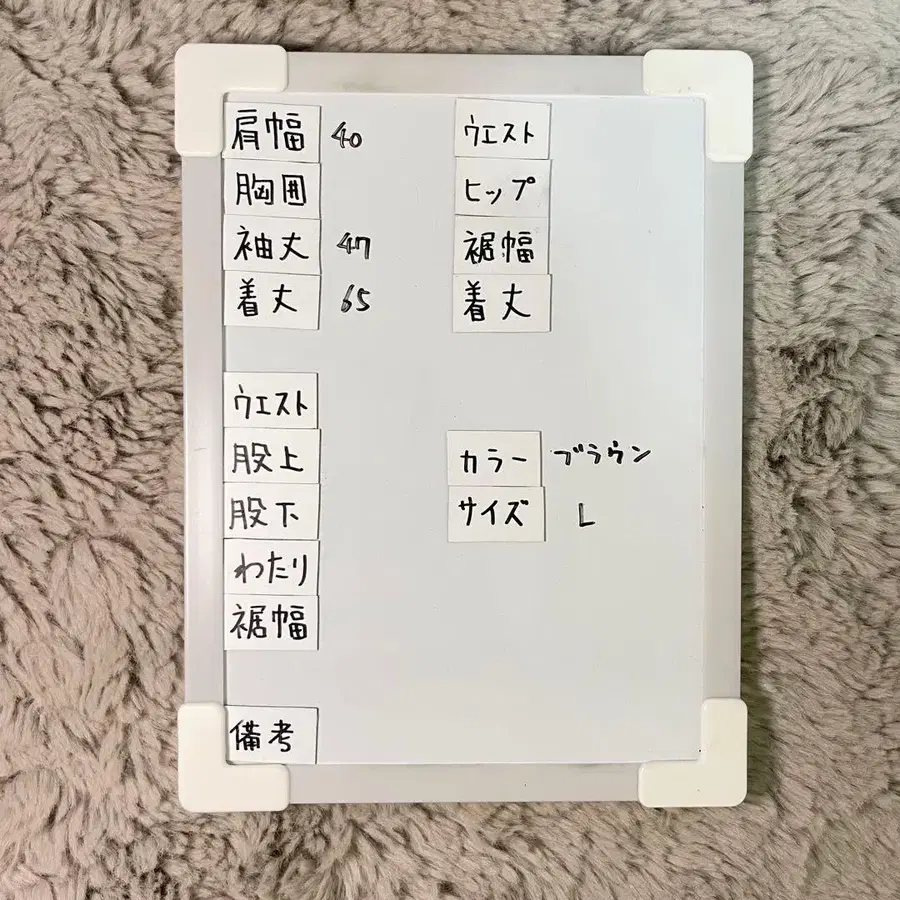 肩幅 40
胸囲
袖丈 47
着丈 65
ウエスト
股上
股下
わたり
裾幅
備考
ウエスト
ヒップ
裾幅
着丈
カラー ブラウン
サイズ L